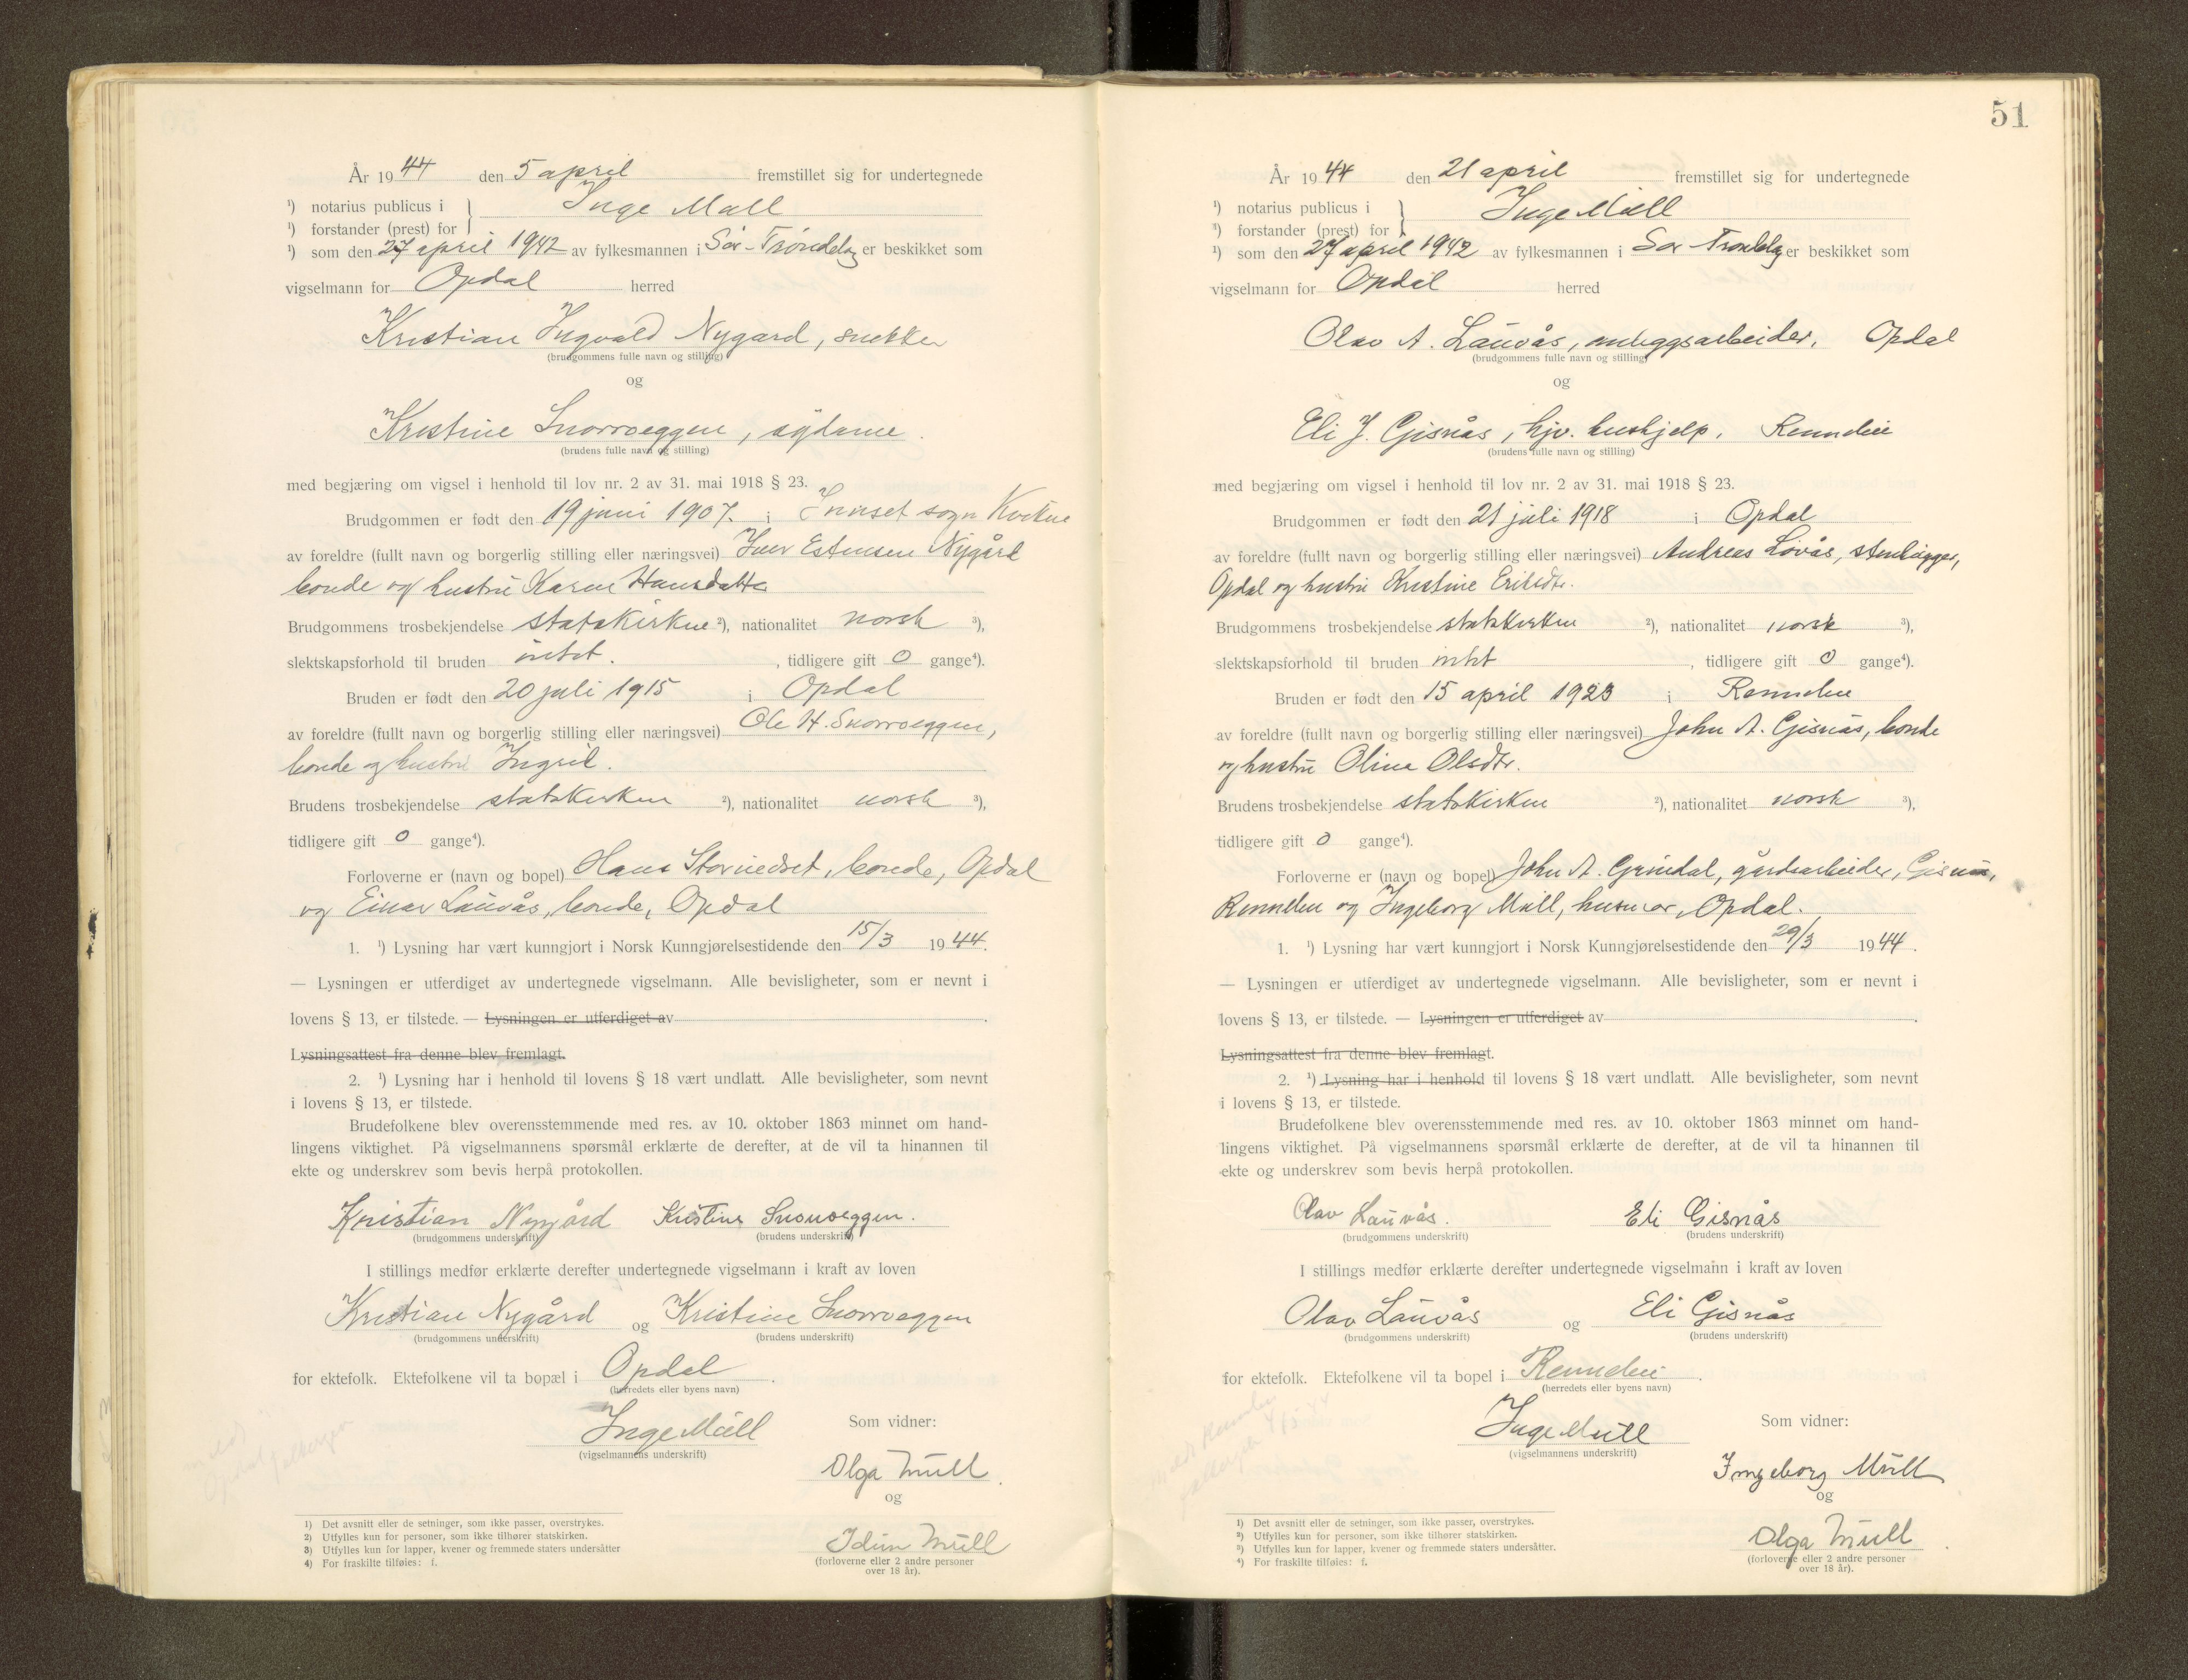 År 1944 den 5 april fremstillet sig for undertegnede
¹) notarius publicus i } Inge Mull
¹) forstander (prest) for
¹) som den 27 april 1942 av fylkesmannen i Sør-Trøndelag er beskikket som
vigselmann for Opdal herred
Kristian Ingvald Nygard, snekker
(brudgommens fulle navn og stilling)
og
Kristine Snorroeggen, sydame.
(brudens fulle navn og stilling)
med begjæring om vigsel i henhold til lov nr. 2 av 31. mai 1918 § 23.
Brudgommen er født den 19 juni 1907. i Innset sogn Kvikne
av foreldre (fullt navn og borgerlig stilling eller næringsvei) Iver Estensen Nygård
bonde og hustru Karen Hansdatter
Brudgommens trosbekjendelse statskirken ²), nationalitet norsk ³),
slektskapsforhold til bruden intet. , tidligere gift 0 gange⁴).
Bruden er født den 20 juli 1915 i Opdal
av foreldre (fullt navn og borgerlig stilling eller næringsvei) Ole H. Snorroeggen,
bonde og hustru Ingril.
Brudens trosbekjendelse statskirken ²), nationalitet norsk ³),
tidligere gift 0 gange⁴).
Forloverne er (navn og bopel) Hans Stornedset, bonde, Opdal
og Einar Lauvås, bonde, Opdal
1. ¹) Lysning har vært kunngjort i Norsk Kunngjørelsestidende den 15/3 1944.
— Lysningen er utferdiget av undertegnede vigselmann. Alle bevisligheter, som er nevnt i
lovens § 13, er tilstede. — Lysningen er utferdiget av .
Lysningsattest fra denne blev fremlagt.
2. ¹) Lysning har i henhold til lovens § 18 vært undlatt. Alle bevisligheter, som nevnt
i lovens § 13, er tilstede.
Brudefolkene blev overensstemmende med res. av 10. oktober 1863 minnet om hand-
lingens viktighet. På vigselmannens spørsmål erklærte de derefter, at de vil ta hinannen til
ekte og underskrev som bevis herpå protokollen.
Kristian Nygård Kristine Snorroeggen.
(brudgommens underskrift) (brudens underskrift)
I stillings medfør erklærte derefter undertegnede vigselmann i kraft av loven
Kristian Nygård og Kristine Snorroeggen
(brudgommens underskrift) (brudens underskrift)
for ektefolk. Ektefolkene vil ta bopæl i Opdal .
(herredets eller byens navn)
Inge Mull Som vidner:
(vigselmannens underskrift)
Olga Mull.
og
Idun Mull
(forloverne eller 2 andre personer
over 18 år).
1) Det avsnitt eller de setninger, som ikke passer, overstrykes.
2) Utfylles kun for personer, som ikke tilhører statskirken.
3) Utfylles kun for lapper, kvener og fremmede staters undersåtter
4) For fraskilte tilføies: f.
51
År 1944 den 21 april fremstillet sig for undertegnede
¹) notarius publicus i } Inge Mull
¹) forstander (prest) for
¹) som den 27 april 1942 av fylkesmannen i Sør-Trøndelag er beskikket som
vigselmann for Opdal herred
Olav A. Lauvås, anleggsarbeider, Opdal
(brudgommens fulle navn og stilling)
og
Eli J. Gisnås, hjv. hushjelp, Rennebu
(brudens fulle navn og stilling)
med begjæring om vigsel i henhold til lov nr. 2 av 31. mai 1918 § 23.
Brudgommen er født den 21 juli 1918 i Opdal
av foreldre (fullt navn og borgerlig stilling eller næringsvei) Andreas Lovås, stenhugger,
Opdal og hustru Kristine Eriksdtr.
Brudgommens trosbekjendelse statskirken ²), nationalitet norsk ³),
slektskapsforhold til bruden intet , tidligere gift 0 gange⁴).
Bruden er født den 15 april 1923 i Rennebu
av foreldre (fullt navn og borgerlig stilling eller næringsvei) John A. Gisnås, bonde
og hustru Oline Olsdtr.
Brudens trosbekjendelse statskirken ²), nationalitet norsk ³),
tidligere gift 0 gange⁴).
Forloverne er (navn og bopel) John A. Grindal, gårdsarbeider, Gisnås,
Rennebu og Ingeborg Mull, husmor, Opdal.
1. ¹) Lysning har vært kunngjort i Norsk Kunngjørelsestidende den 29/3 1944.
— Lysningen er utferdiget av undertegnede vigselmann. Alle bevisligheter, som er nevnt i
lovens § 13, er tilstede. — Lysningen er utferdiget av .
Lysningsattest fra denne blev fremlagt.
2. ¹) Lysning har i henhold til lovens § 18 vært undlatt. Alle bevisligheter, som nevnt
i lovens § 13, er tilstede.
Brudefolkene blev overensstemmende med res. av 10. oktober 1863 minnet om hand-
lingens viktighet. På vigselmannens spørsmål erklærte de derefter, at de vil ta hinannen til
ekte og underskrev som bevis herpå protokollen.
Olav Lauvås. Eli Gisnås
(brudgommens underskrift) (brudens underskrift)
I stillings medfør erklærte derefter undertegnede vigselmann i kraft av loven
Olav Lauvås og Eli Gisnås
(brudgommens underskrift) (brudens underskrift)
for ektefolk. Ektefolkene vil ta bopel i Rennebu .
(herredets eller byens navn)
Inge Mull Som vidner:
(vigselmannens underskrift)
Ingeborg Mull
og
Olga Mull
(forloverne eller 2 andre personer
over 18 år).
1) Det avsnitt eller de setninger, som ikke passer, overstrykes.
2) Utfylles kun for personer, som ikke tilhører statskirken.
3) Utfylles kun for lapper, kvener og fremmede staters undersåtter.
4) For fraskilte tilføies: f.